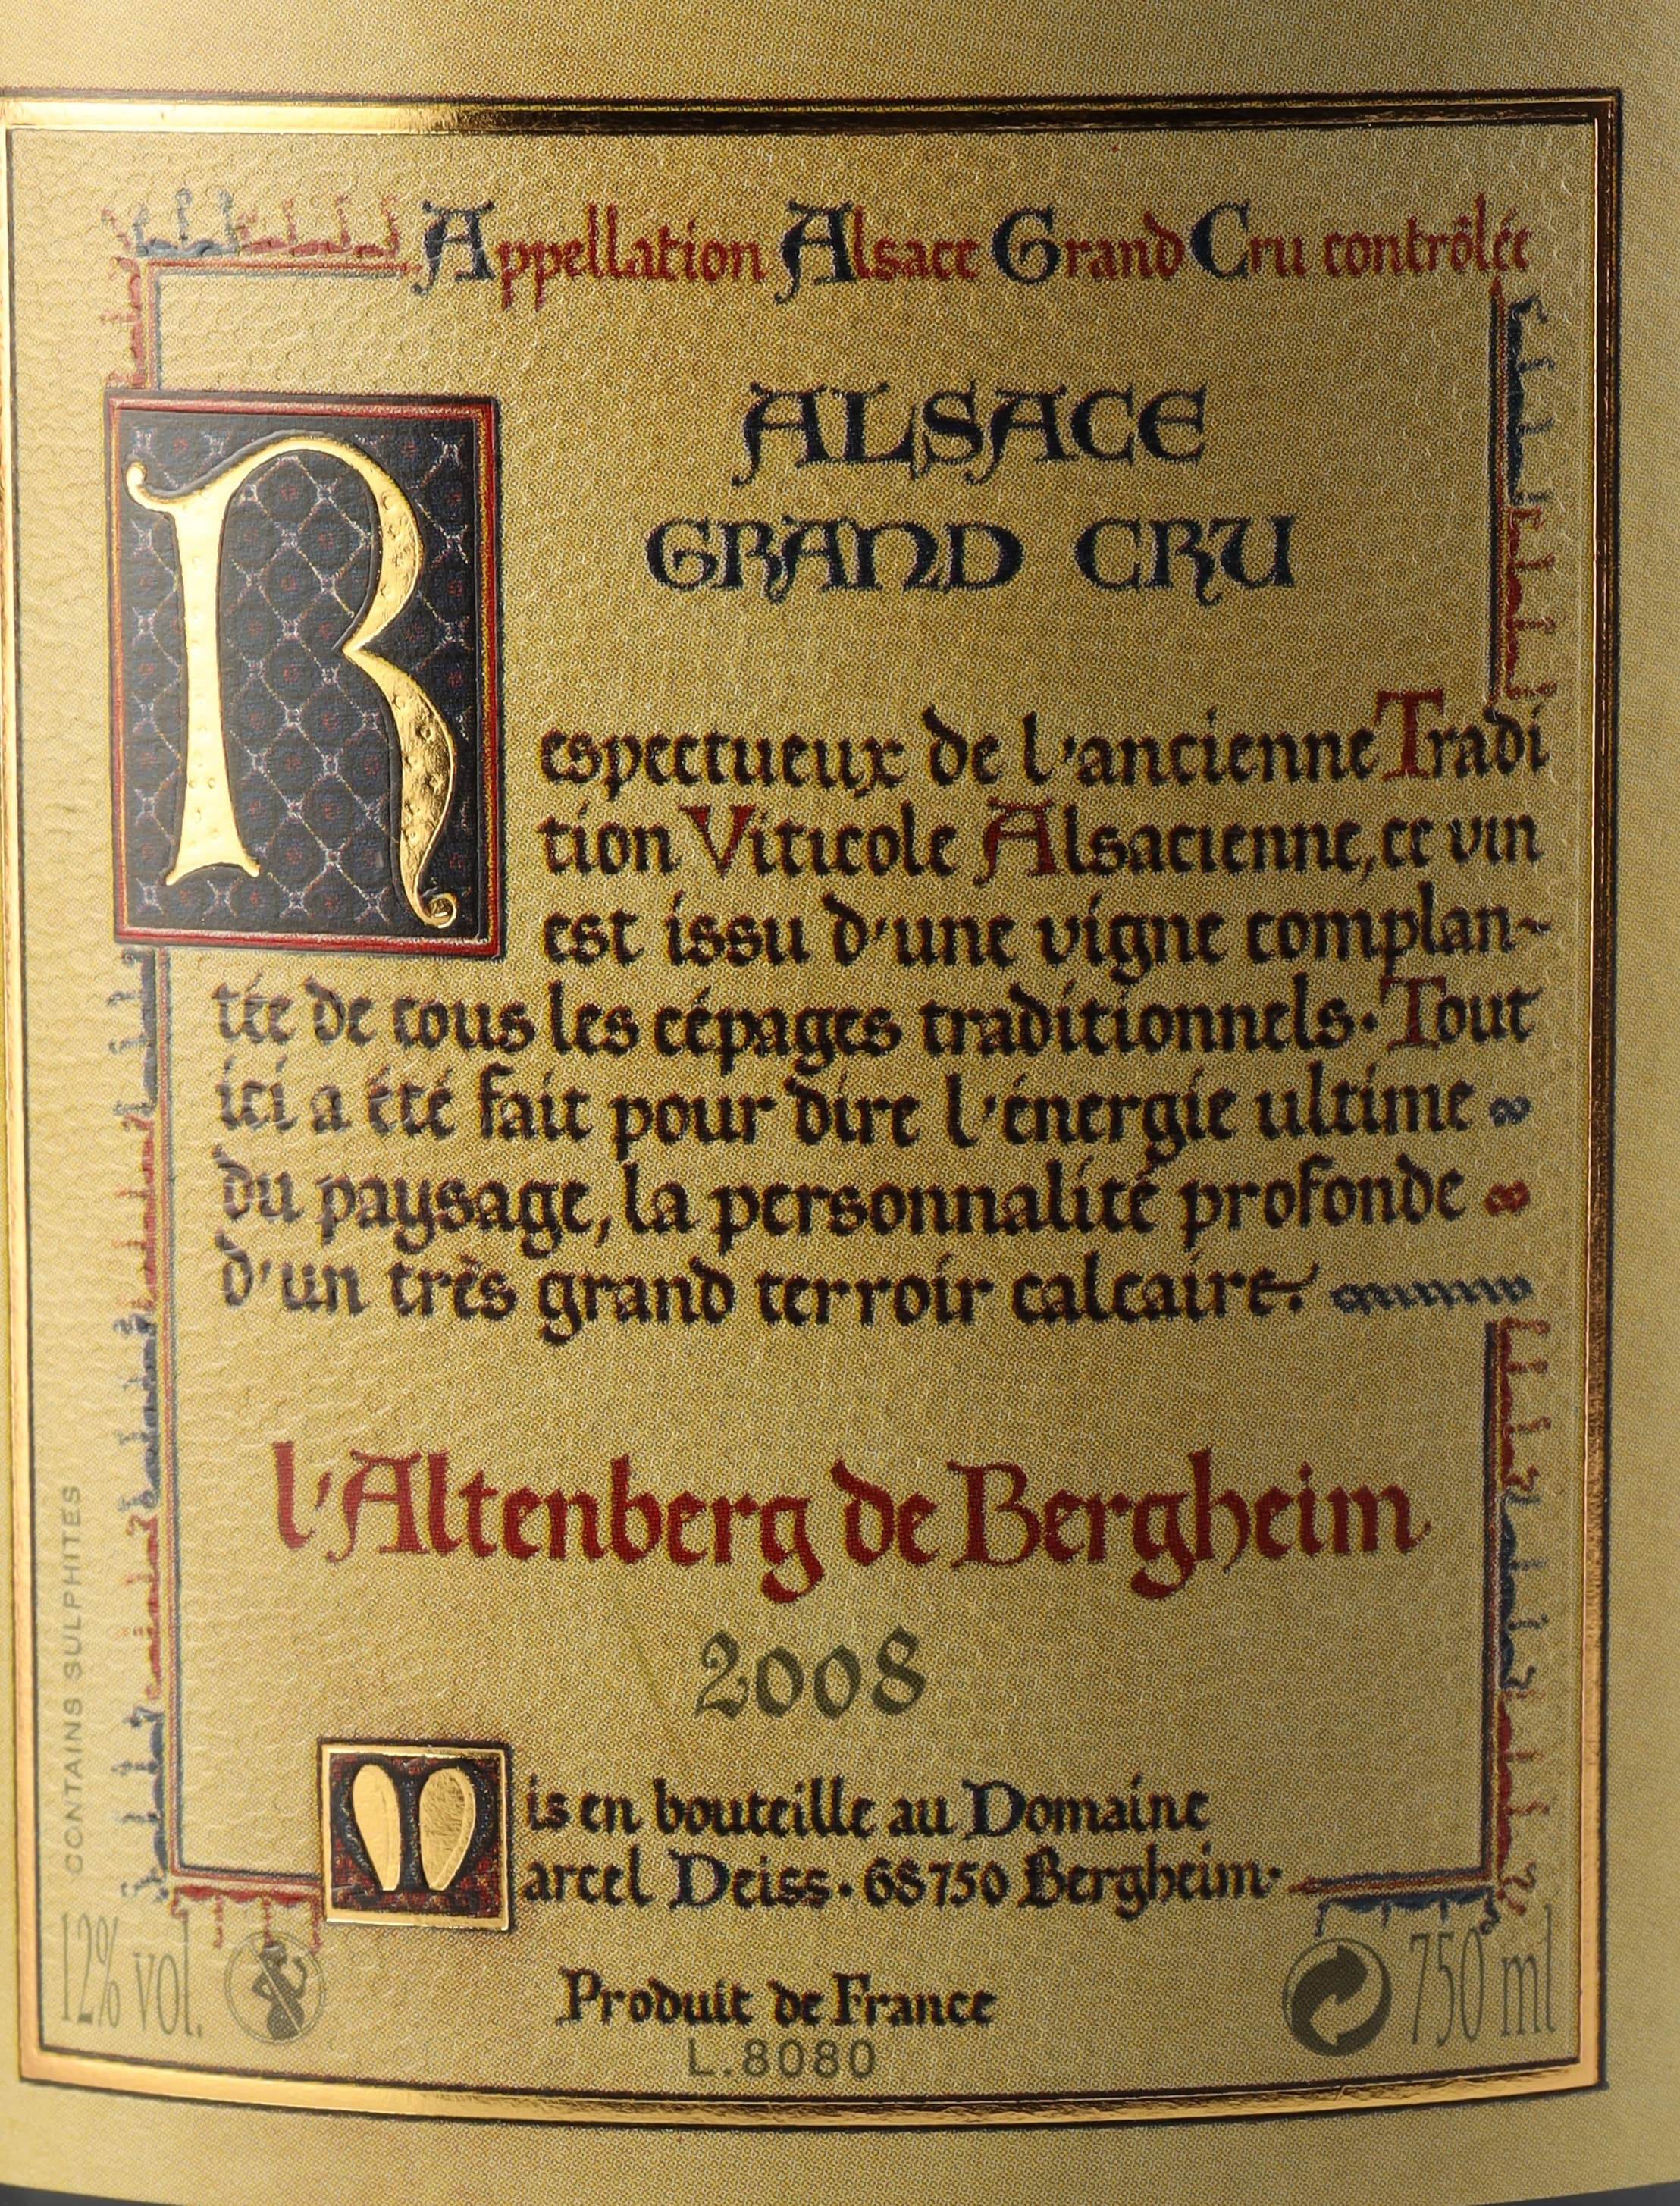 Appellation Alsace Grand Cru contrôlée
ALSACE
GRAND CRU
Respectueux de l'ancienne Tradi
tion Viticole Alsacienne, ce vin
est issu d'une vigne complan-
tée de tous les cépages traditionnels. Tout
ici a été fait pour dire l'énergie ultime
du paysage, la personnalité profonde
d'un très grand terroir calcaire.
l'Altenberg de Bergheim
2008
Mis en bouteille au Domaine
Marcel Deiss. 68750 Bergheim.
CONTAINS SULPHITES
12% vol.
750 ml
Produit de France
L.8080